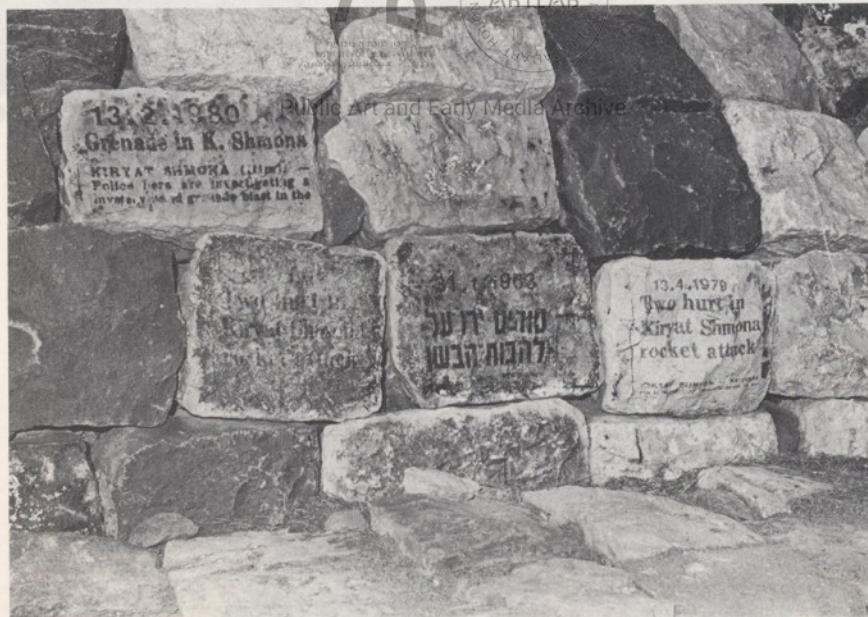 Public Art and Early Media Archive
13.2.1980
Grenade in K. Shmona
KIRYAT SHMONA
Police here are investigating a
grenade blast in the
Two hurt in
Kiryat Shmona
rocket attack
סורים ירו על
להבות הבשן
13.4.1979
Two hurt in
Kiryat Shmona
rocket attack